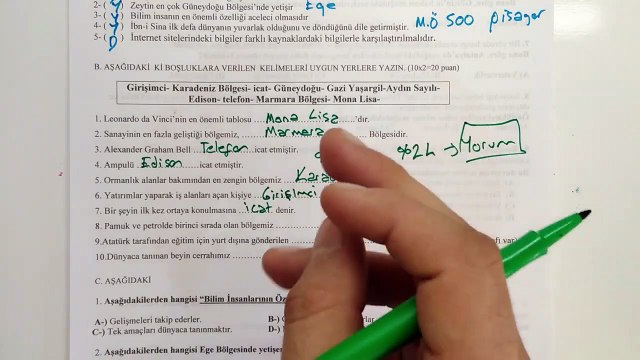 2-( Y ) Zeytin en çok Güneydoğu Bölgesi'nde yetişir Ege
3-( Y ) Bilim insanın en önemli özelliği aceleci olmasıdır
4-( Y ) İbn-i Sina ilk defa dünyanın yuvarlak olduğunu ve döndüğünü dile getirmiştir. M.Ö 500 pisagor
5-( D ) İnternet sitelerindeki bilgiler farklı kaynaklardaki bilgilerle karşılaştırılmalıdır.
B. AŞAĞIDAKİ Kİ BOŞLUKLARA VERİLEN KELİMELERİ UYGUN YERLERE YAZIN. (10x2=20 puan)
Girişimci- Karadeniz Bölgesi- icat- Güneydoğu- Gazi Yaşargil-Aydın Sayılı-
Edison- telefon- Marmara Bölgesi- Mona Lisa-
1. Leonardo da Vinci'nin en önemli tablosu ....Mona Lisa.....'dır.
2. Sanayinin en fazla geliştiği bölgemiz, ....Marmara Bölgesidir.
3. Alexander Graham Bell ..Telefon...icat etmiştir.
4. Ampulü ..Edison......icat etmiştir. %24 → Yorum
5. Ormanlık alanlar bakımından en zengin bölgemiz
6. Yatırımlar yaparak iş alanları açan kişiye ...Girişimci
7. Bir şeyin ilk kez ortaya konulmasına ...icat denir.
8. Pamuk ve petrolde birinci sırada olan bölgemiz
9.Atatürk tarafından eğitim için yurt dışına gönderilen
10.Dünyaca tanınan beyin cerrahımız
C. AŞAĞIDAKİ
1. Aşağıdakilerden hangisi "Bilim İnsanlarının
A-) Gelişmeleri takip ederler. B-)
C-) Tek amaçları dünyaca tanınmaktır. D-)
2. Aşağıdakilerden hangisi Ege Bölgesinde